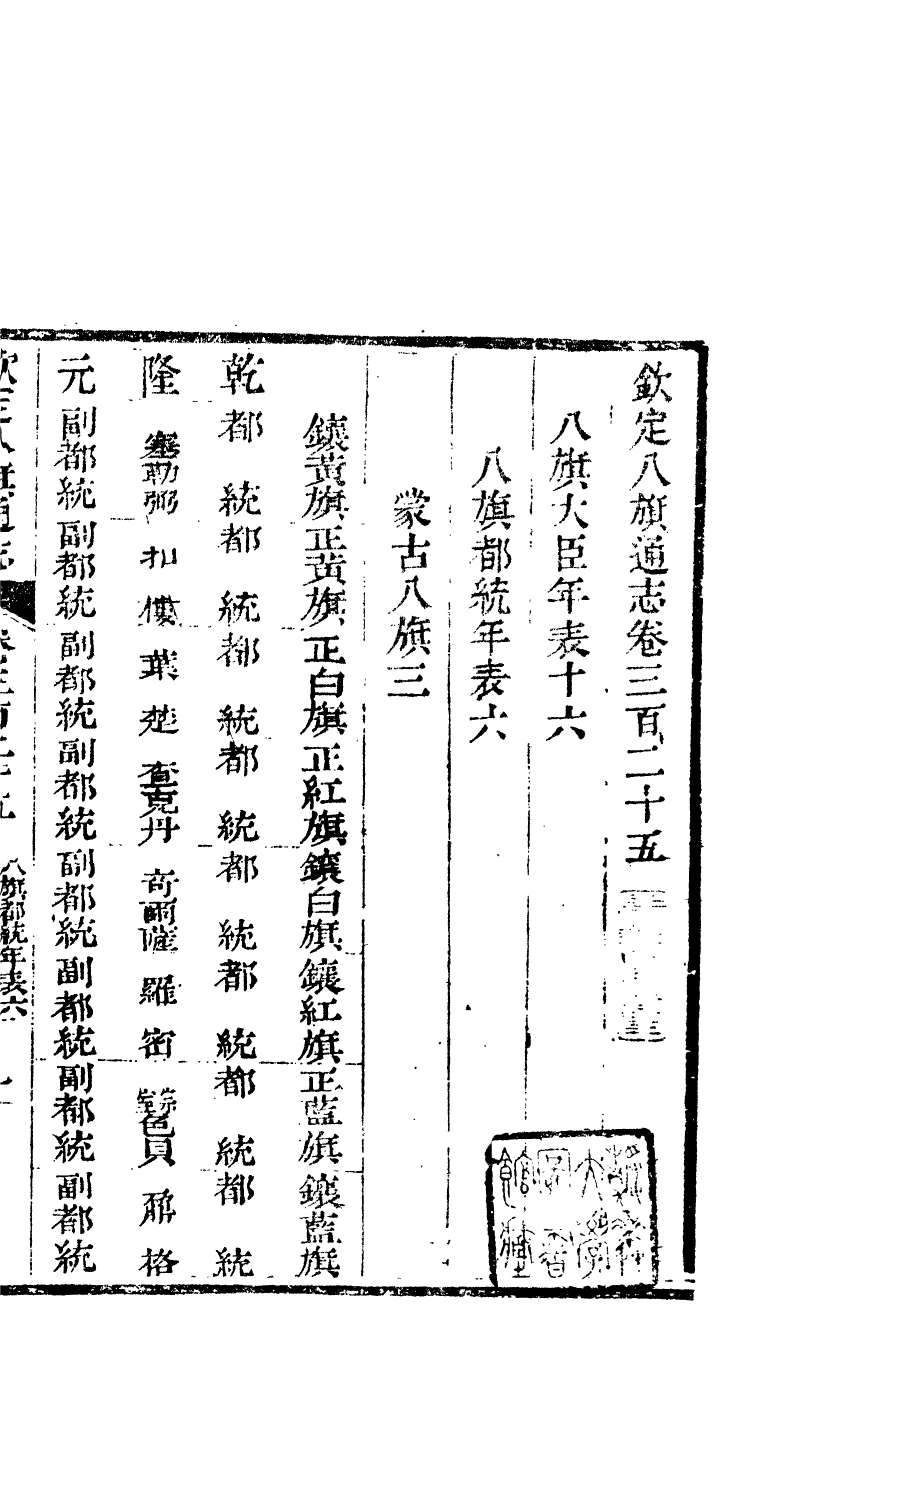 欽定八旗通志卷三百二十五
八旗大臣年表十六
八旗都統年表六
蒙古八旗三
鑲黃旗 正黃旗 正白旗 正紅旗 鑲白旗 鑲紅旗 正藍旗 鑲藍旗
乾 都統 都統 都統 都統 都統 都統 都統 都統
隆 塞勒弼 扣 葉楚 查克丹 奇爾薩 羅密 色貝 鼐格
元 副都統 副都統 副都統 副都統 副都統 副都統 副都統 副都統
八旗都統年表六